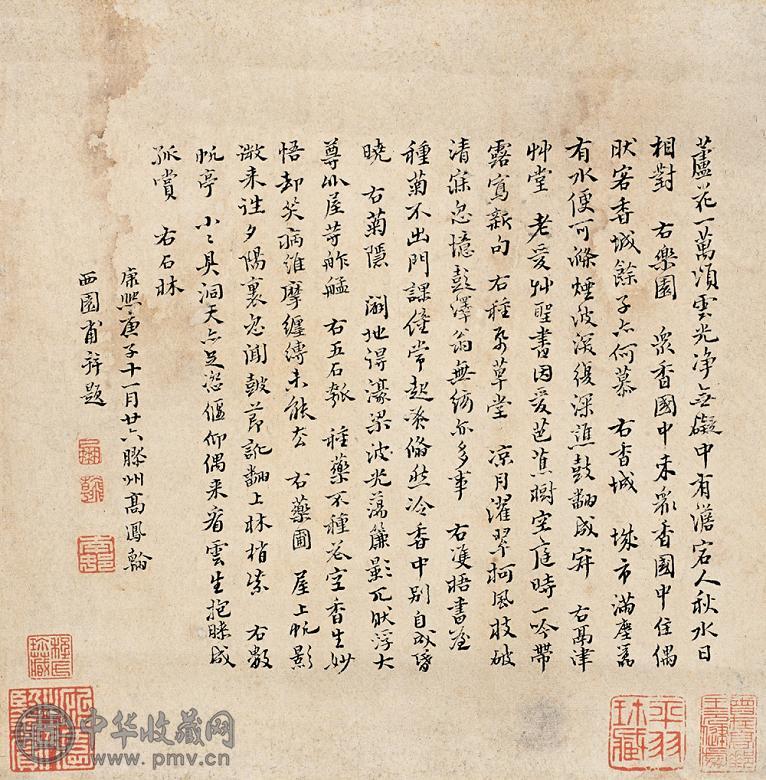 蘆花一萬頃雲光净無礙中有澹宕人秋水日
相對 右樂園 眾香國中來眾香國中住偶
肰客香城餘子亦何慕 右香城 城市滿塵
有水便可滌煙波深復深漁鼓翻成寂 右津
艸堂 老愛艸聖書因愛芭蕉樹空庭時一吟帶
露寫新句 右種蕉草堂 凉月濯翠柯風枝破
清寐忽憶彭澤翁無絃亦多事 右雙梧書屋
種菊不出門課僮常起翛然冷香中别自成昏
曉 右菊隱 闢地得濠梁波光蕩簾影兀肰浮大
尊小屋等舴艋 右五石瓠 種藥不種花空香生妙
悟却笑病維摩纏縛未能去 右藥圃 屋上帆影
微来往夕陽裏忽聞鼓節訛翻上林梢紫 右數
帆亭 小〻具洞天亦足恣偃仰偶来看雲生抱眠成
孤賞 右石牀
康熙庚子十一月廿六膠州高鳳翰
西園甫并題
中华收藏网
www.pmv.cn